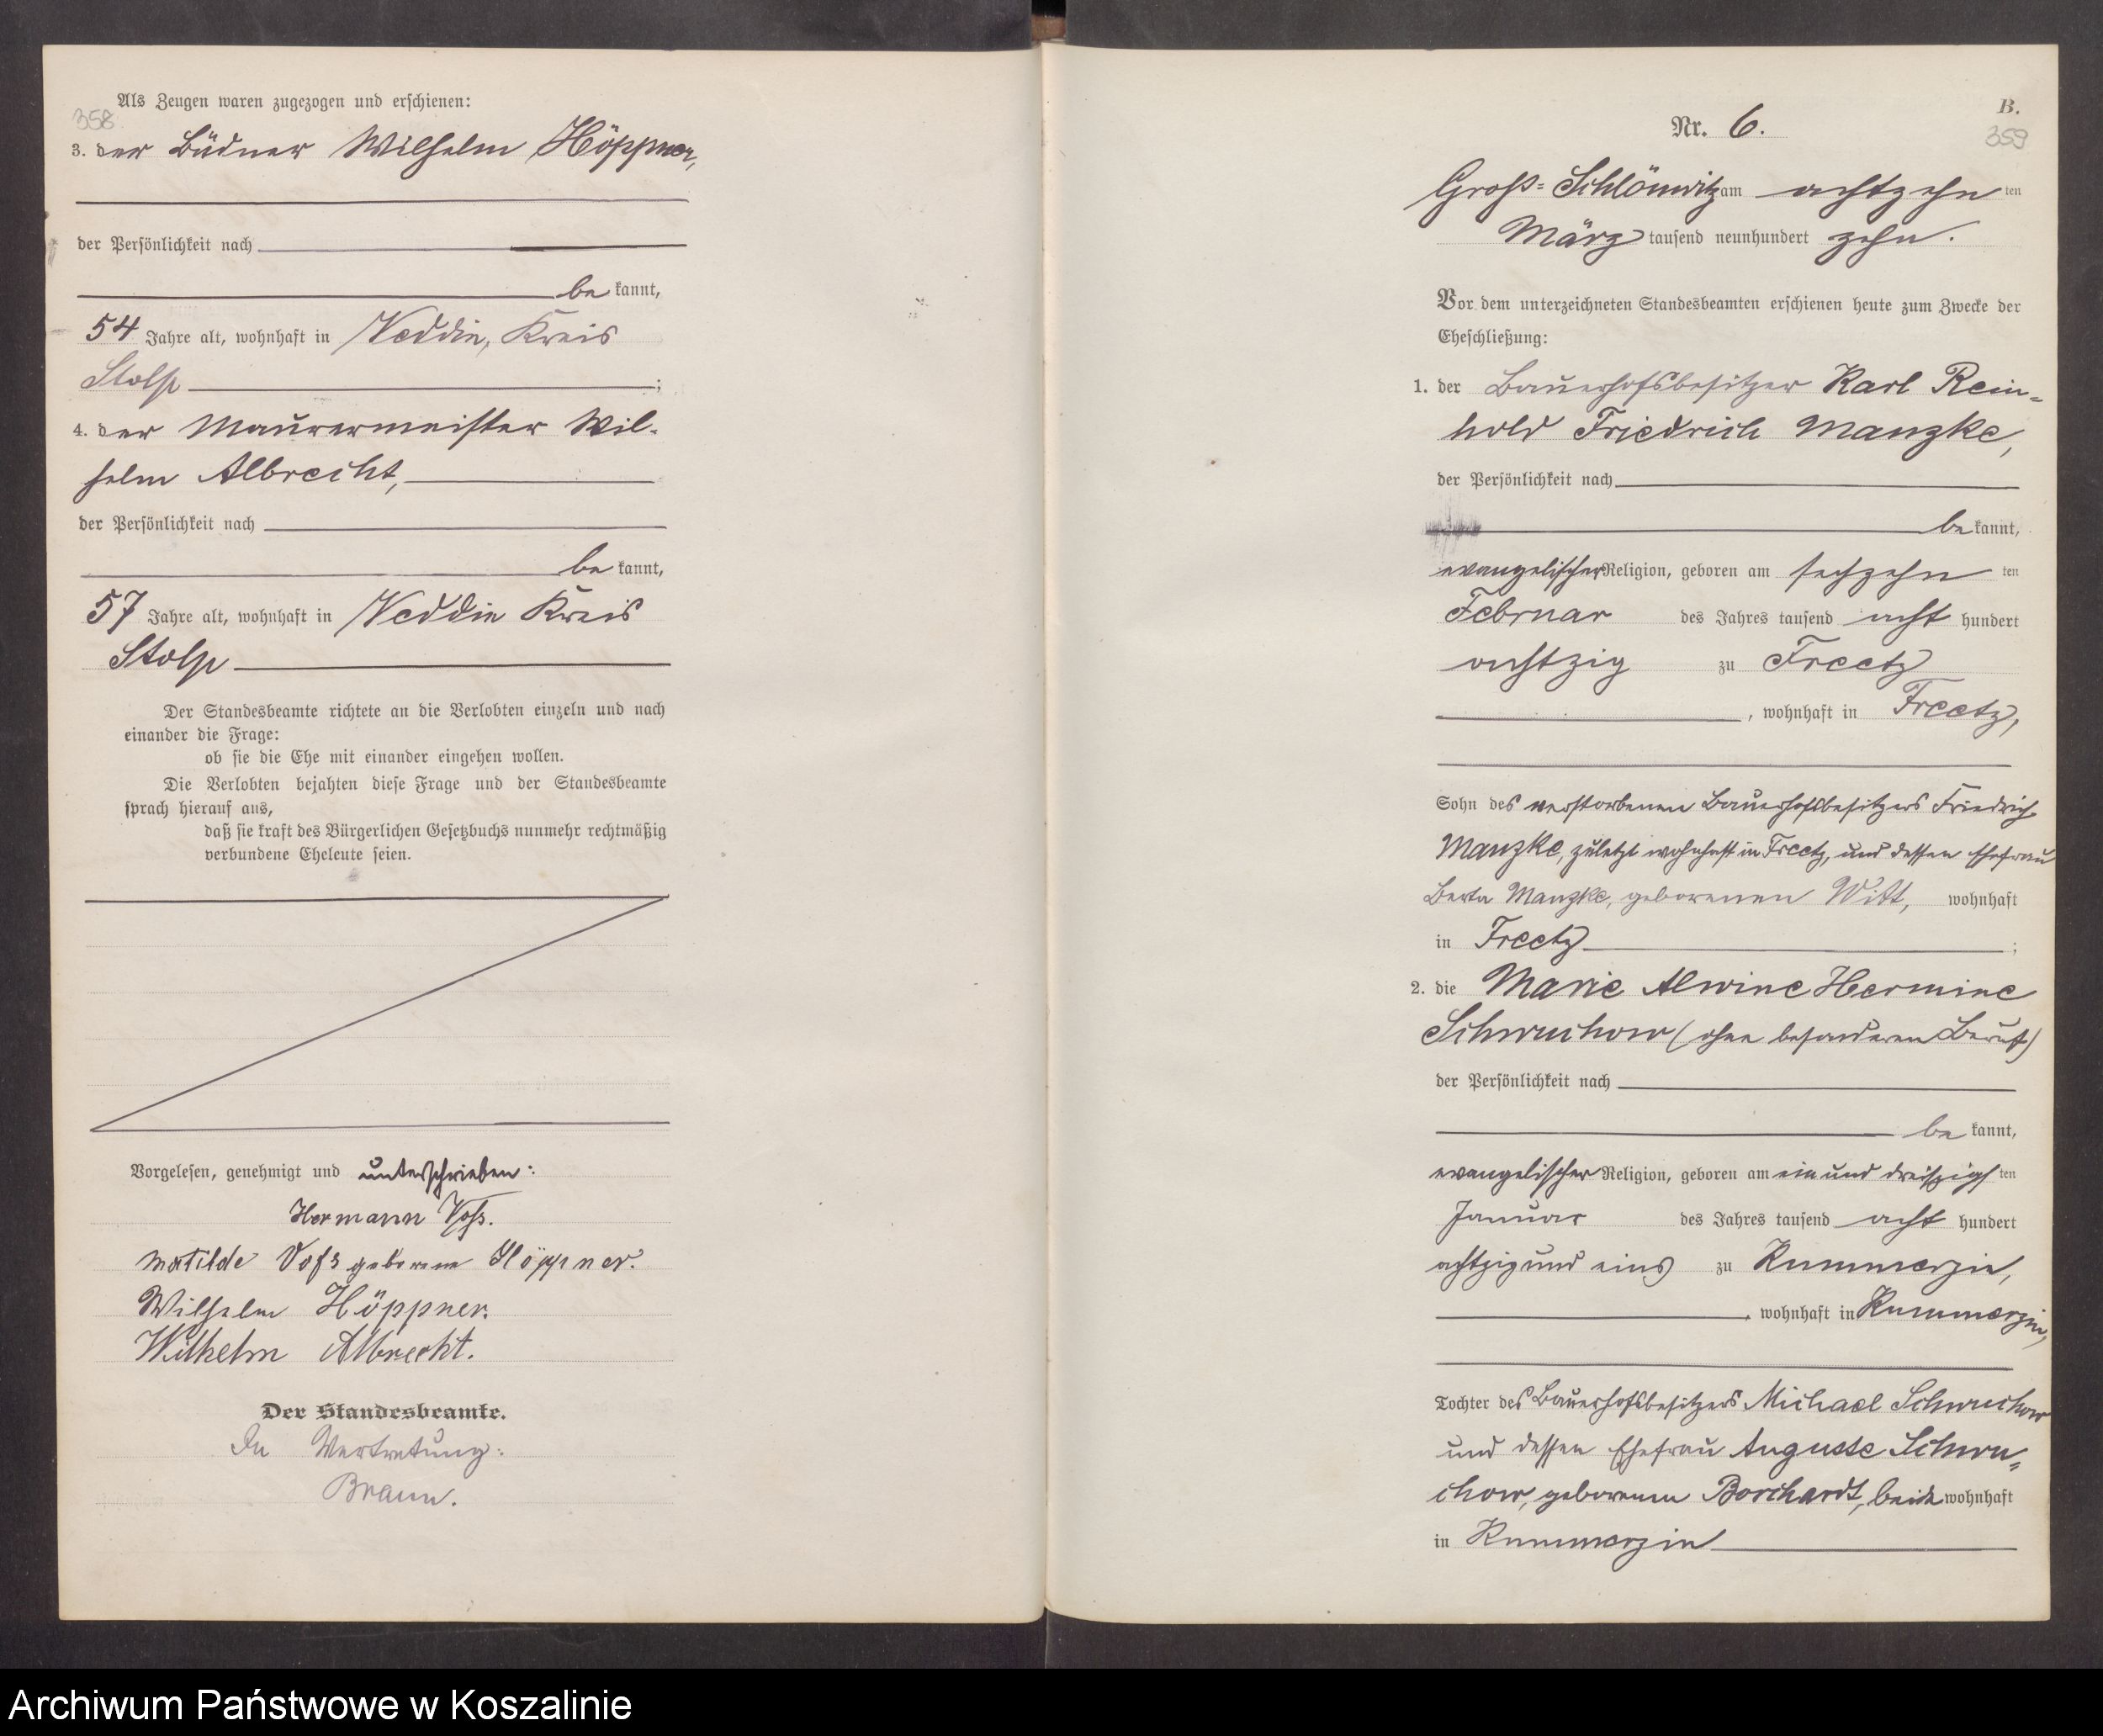 Als Zeugen waren zugezogen und erschienen:
358
3. der Büdner Wilhelm Höppner,
der Persönlichkeit nach
be kannt,
54 Jahre alt, wohnhaft in Veddin, Kreis
Stolp ;
4. der Maurermeister Wil-
helm Albrecht,
der Persönlichkeit nach
be kannt,
57 Jahre alt, wohnhaft in Veddin Kreis
Stolp
Der Standesbeamte richtete an die Verlobten einzeln und nach
einander die Frage:
ob sie die Ehe mit einander eingehen wollen.
Die Verlobten bejahten diese Frage und der Standesbeamte
sprach hierauf aus,
daß sie kraft des Bürgerlichen Gesetzbuchs nunmehr rechtmäßig
verbundene Eheleute seien.
Vorgelesen, genehmigt und unterschrieben:
Hermann Voß.
Matilde Voß geborene Höppner.
Wilhelm Höppner.
Wilhelm Albrecht.
Der Standesbeamte.
In Vertretung:
Braun.
B.
Nr. 6.
359
Groß-Schlönwitz am achtzehn ten
März tausend neunhundert zehn.
Vor dem unterzeichneten Standesbeamten erschienen heute zum Zwecke der
Eheschließung:
1. der Bauerhofsbesitzer Karl Rein-
hold Friedrich Manzke,
der Persönlichkeit nach
be kannt,
evangelischer Religion, geboren am sechzehn ten
Februar des Jahres tausend acht hundert
achtzig zu Freetz
, wohnhaft in Freetz,
Sohn des verstorbenen Bauerhofsbesitzers Friedrich
Manzke, zuletzt wohnhaft in Freetz, und dessen Ehefrau
Berta Manzke, geborenen Witt, wohnhaft
in Freetz ;
2. die Marie Alwine Hermine
Schwuchow (ohne besonderen Beruf)
der Persönlichkeit nach
be kannt,
evangelischer Religion, geboren am einunddreißigs ten
Januar des Jahres tausend acht hundert
achtzigund eins zu Kummerzin,
, wohnhaft in Kummerzin,
Tochter des Bauerhofsbesitzers Michael Schwuchow
und dessen Ehefrau Auguste Schwu-
chow, geborenen Borchardt, beide wohnhaft
in Kummerzin
Archiwum Państwowe w Koszalinie